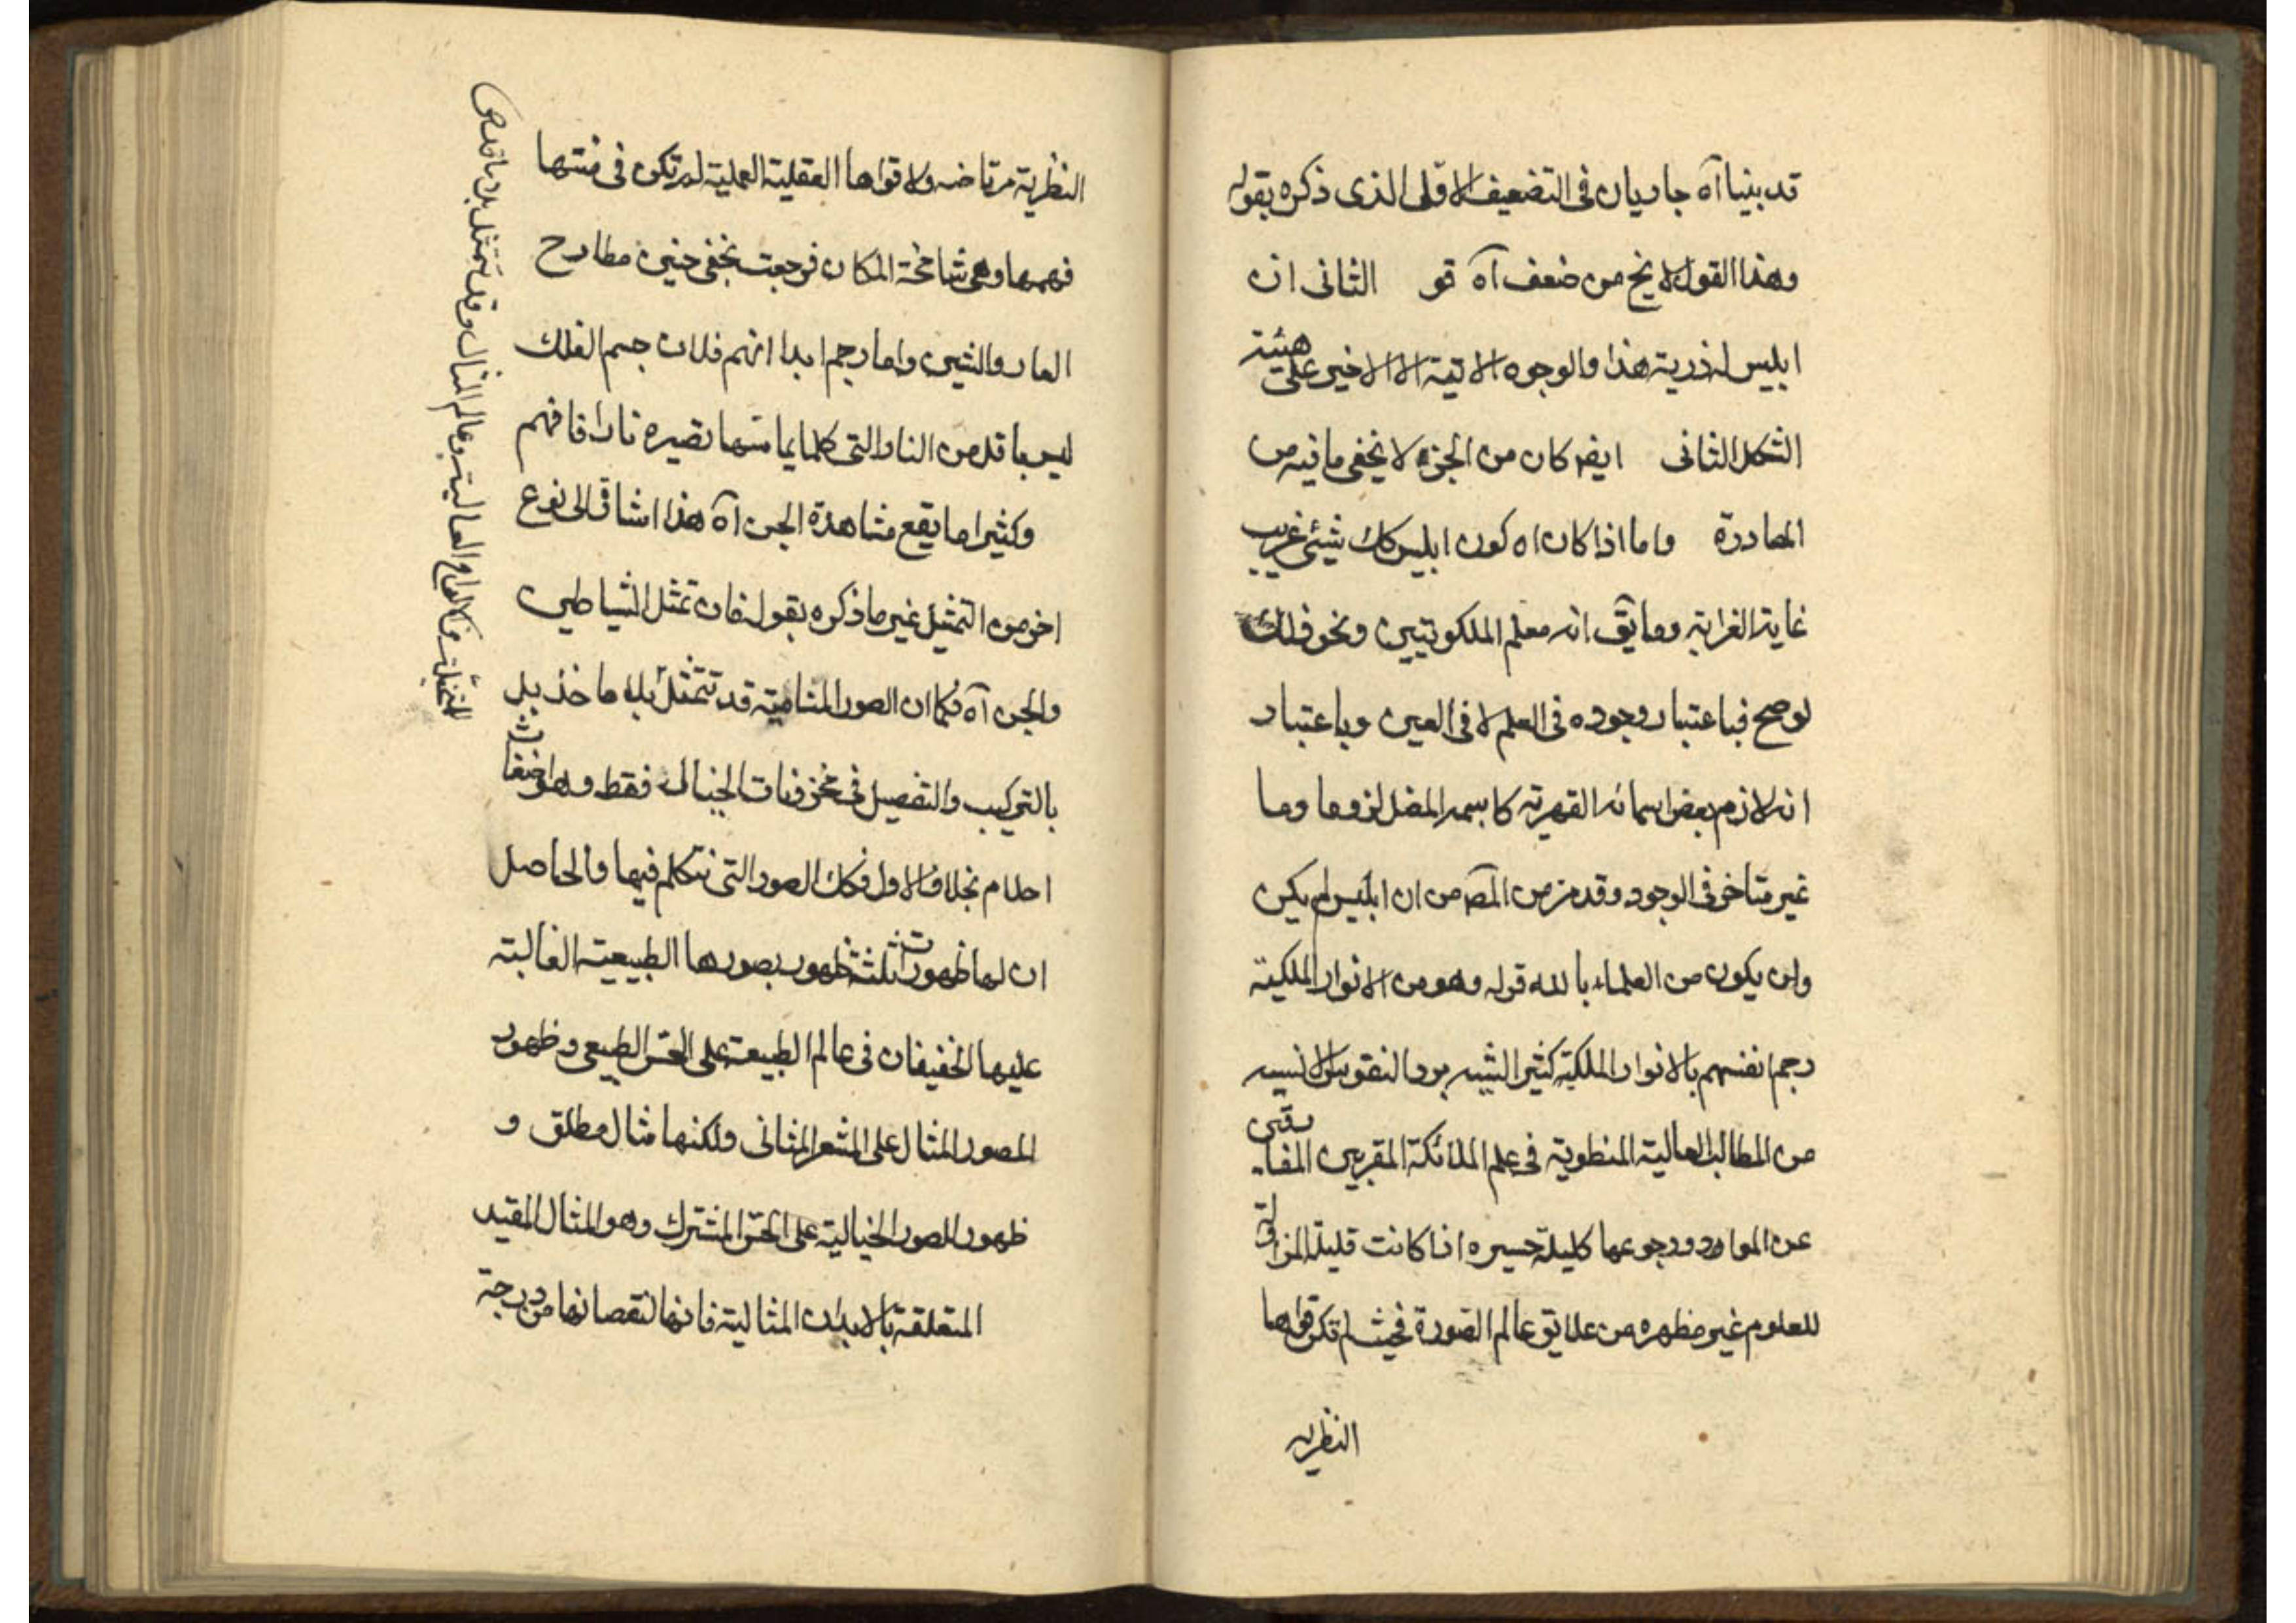 قد بنيا آه جاريان فى التضعيف الاقلى الذى ذكره بقوله
وهذا القول لا يخ من ضعف آه قو الثانى ان
ابليس له ذرية هذا والوجوه الاتية الا الاخير على هيئة
الشكل الثانى ايضا كان من الجن لا يخفى ما فيه من
المصادرة واما اذا كان اه كون ابليس كك شيئى غريب
غاية الغرابة وما يق انه معلم الملكوتيين ونحو ذلك
لو صح فباعتبار وجوده فى العلم لا فى العين وباعتبار
انه لازم بعض اسمائه القهرية كاسمه المضل لزوما وما
غير متاخر فى الوجود وقد مر من المصه من ان ابليس لم يكن
ولن يكون من العلماء بالله قوله وهو من الانوار الملكية
رجم نفسهم بالانوار الملكية كثير الشبه برد النفوس الانسيه
من المطالب العالية المنطوية فى علم الملائكة المقربين المفارقين
عن المواد ورجوعها كليلة حسيره اذا كانت قليلة المزاولة
للعلوم غير مطهره من علايق عالم الصورة فحيث لم تكن قواها
النظريه
النظرية مرتاضه ولا قواها العقلية العملية لم تكن فى منتها
فهمها وهى شامخة المكان فرجعت بخفى حنين مطارح
العار والشين واما رجم ابدانهم فلان جسم الفلك
ليس باقل من النار التى كلما يماسها تصيره نارا فافهم
وكثيرا ما يقع مشاهدة الجن آه هذا اشارة الى نوع
اخر من التمثيل غير ما ذكره بقوله فان تمثل الشياطين
والجن آه فكما ان الصور المنامية قد تتمثل بلا ماخذ بل
بالتركيب والتفصيل فى مخزونات الخيال فقط وهو اضغاث
احلام بخلاف الاول فكك الصور التى نتكلم فيها والحاصل
ان لها ظهورات ثلثة ظهور بصورها الطبيعية الغالبة
عليها الخفيفان فى عالم الطبيعة على الحس الطبيعى وظهور
للصور المثال على المشعر المثانى ولكنها مثال مطلق و
ظهور للصور الخيالية على الحس المشترك وهو المثال المقيد
المتعلقة بالابدان المثالية فانها لنقصانها من درجة
الارواح العالية وعالم المثال وقد تتمثل بلا ماخذ